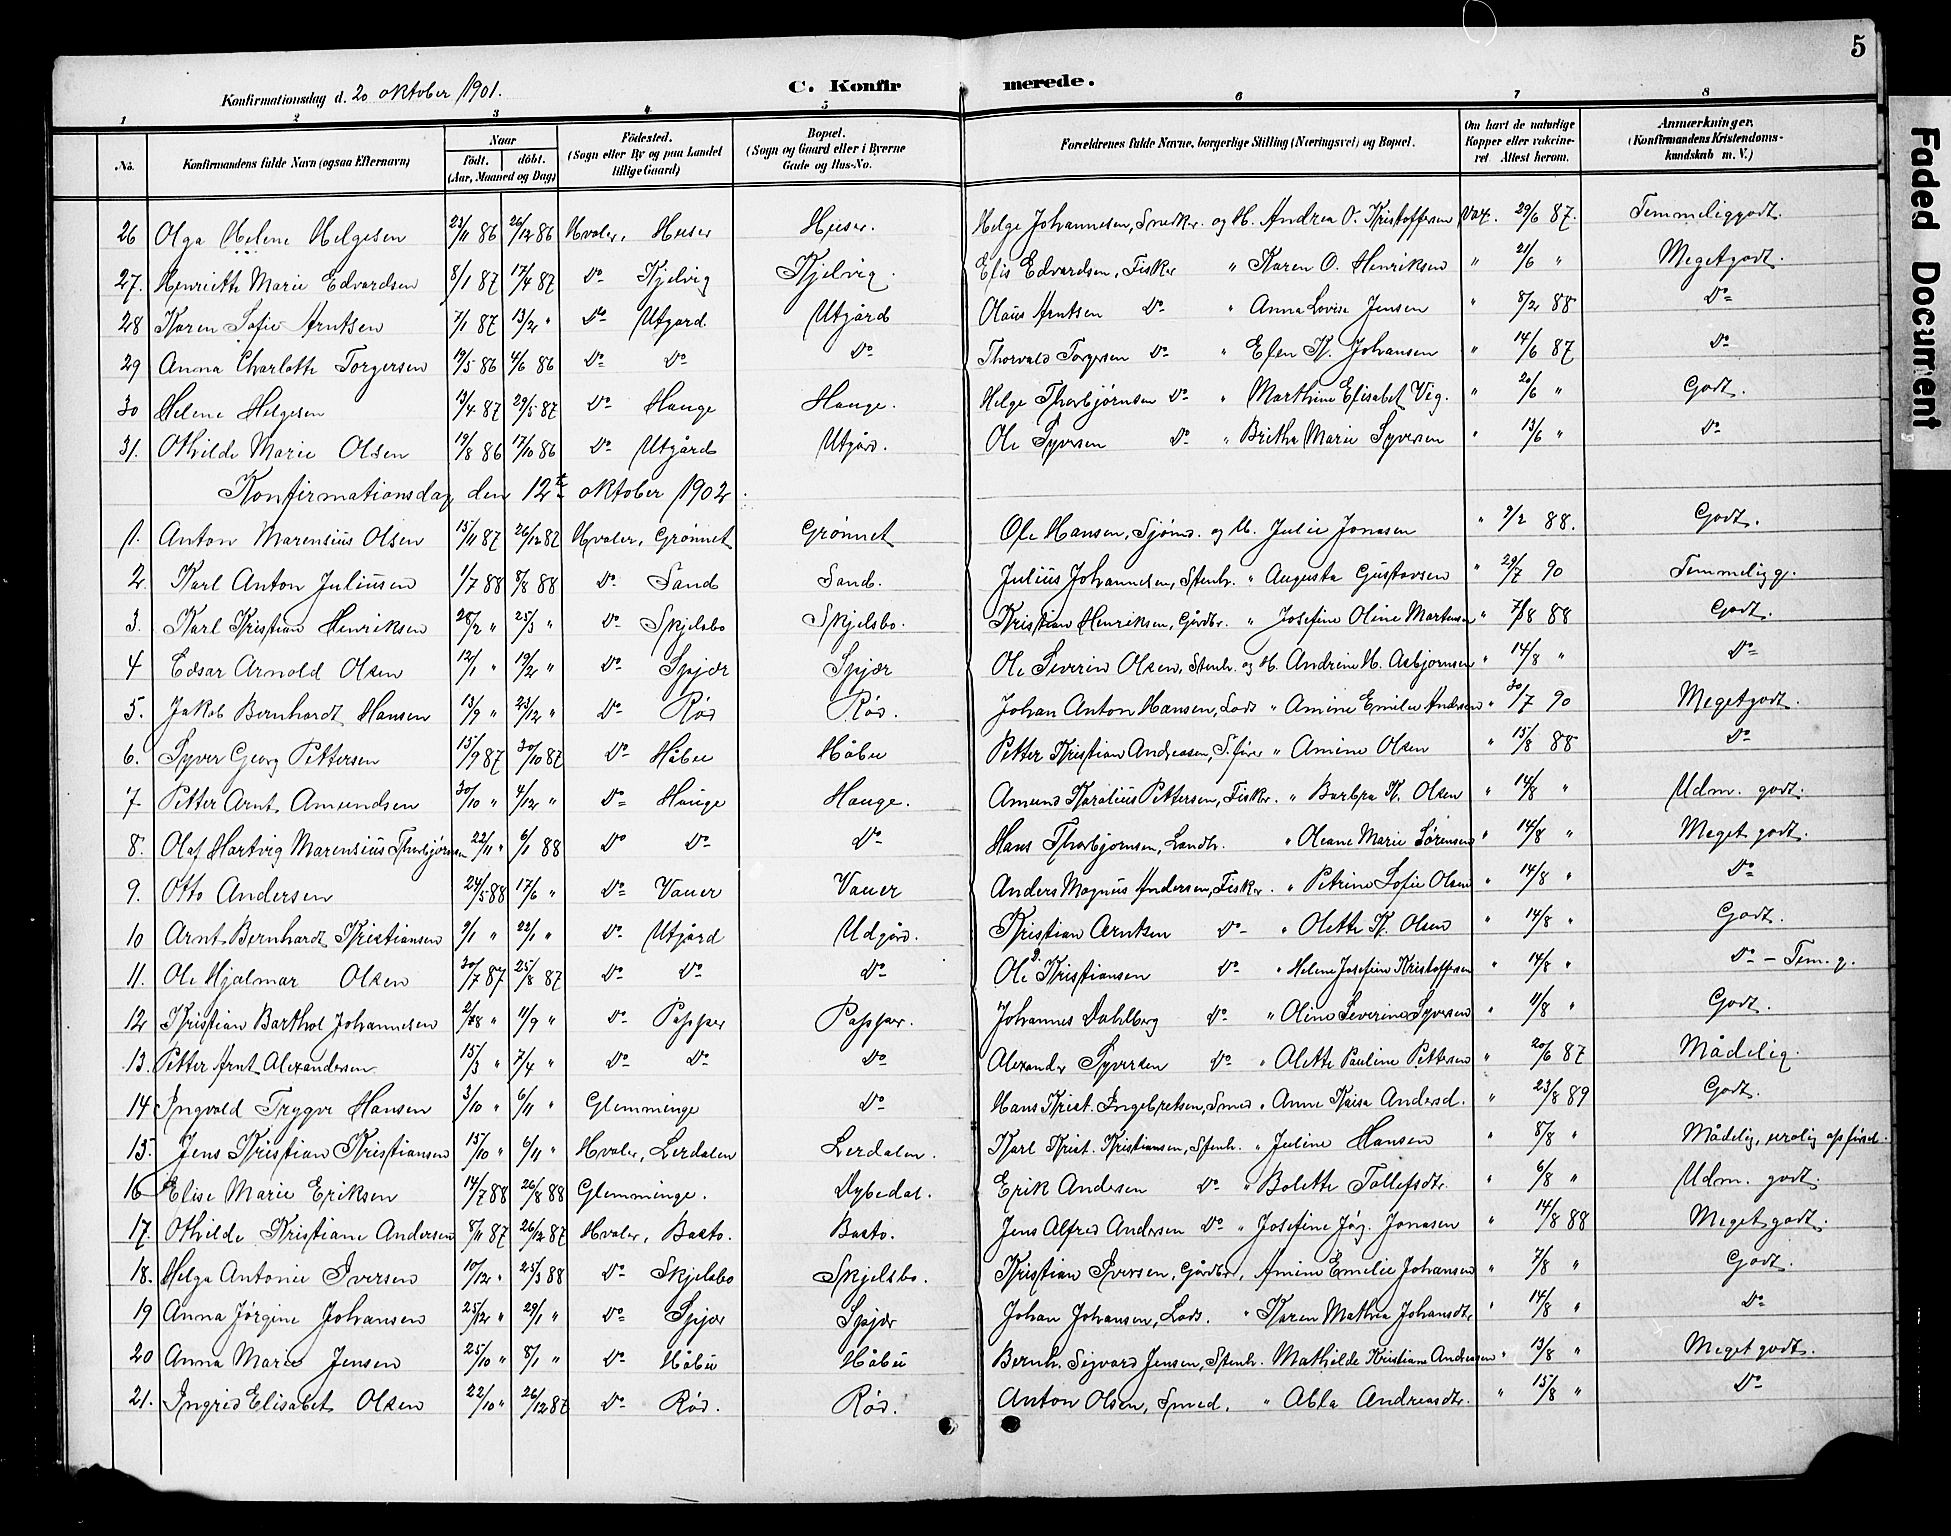 5
Konfirmationsdag d. 20 oktober 1901. C. Konfir merede.
1 2 3 4 5 6 7 8
No. Konfirmandens fulde Navn (ogsaa Efternavn) Naar født. døbt. (Aar, Maaned og Dag) Fødested. (Sogn eller By og paa Landet tillige Gaard) Bopæl. (Sogn og Gaard eller i Byerne Gade og Hus-No. Forældrenes fulde Navne, borgerlige Stilling (Næringsvei) og Bopæl. Om havt de naturlige Kopper eller vakcineret Attest herom. Anmærkninger. (Konfirmandens Kristendomskundskab m. V.)
26 Olga Helene Helgesen 23/11 86 26/12 86 Hvaler, Huser Huser. Helge Johannesen, Snedkr. og H. Andrea O. Kristoffersen Vax. 29/6 87. Temmeliggodt.
27. Henriette Marie Edvardsen 8/1 87 17/4 87 Do Kjelvig Kjelvig. Elis Edvardsen, Fisker " Karen O. Henriksen " 21/6 " Megetgodt.
28 Karen Sofie Arntsen 7/1 87 13/2 " Do Utgard Utgård Olaus Arntsen Do " Anna Lovise Jensen " 8/2 88 Do
29 Anna Charlotte Torgersen 19/5 86 4/6 86 Do Do Do Thorvald Torgersen Do " Elen K. Johansen " 14/6 87 Do
30 Helene Helgesen 13/4 87 29/5 87 Do Hauge Hauge. Helge Thorbjørnsen Do " Marthine Elisabet Vig. " 20/6 " Godt.
31. Othilde Marie Olsen 19/8 86 17/10 86 Do Utgård Utgård. Ole Syversen Do " Brithe Marie Syversen " 13/6 " Do
Konfirmationsdag den 12te oktober 1902.
1. Anton Marensius Olsen 15/11 87 26/12 87 Hvaler, Grønnet Grønnet Ole Hansen, Sjømd. og H. Julie Jonasen " 9/2 88. Godt.
2. Karl Anton Juliusen 1/7 88 8/8 88 Do Sand Sand. Julius Johannesen, Stenh. " Augusta Gustavsen " 29/7 90 Temmelig g.
3. Karl Kristian Henriksen 28/2 " 25/3 " Do Skjelsbo Skjelsbo. Kristian Henriksen, Gårdbr. " Josefine Oline Martensen " 7/8 88 Godt.
4 Edsar Arnold Olsen 12/1 " 19/2 " Do Spjær Spjær Ole Severin Olsen, Stenh. og H. Andrine H. Asbjørnsen " 14/8 " Do
5. Jakob Bernhardt Hansen 13/9 " 23/12 " Do Rød Rød. Johan Anton Hansen, Lods " Amine Emilie Andersen " 30/7 90 Megetgodt.
6. Syver Georg Pettersen 15/9 87 30/10 87 Do Håbu Håbu Petter Kristian Andreasen, S.fører " Amine Olsen " 15/8 88 Do
7 Petter Arnt Amundsen 30/10 " 4/12 " Do Hauge Hauge. Amund Karelius Pettersen, Fisker. " Barbra K. Olsen " 14/8 " Udm. godt.
8. Olaf Hartvig Marensius Thorbjørnsen 22/11 " 6/1 88 Do Do Do Hans Thorbjørnsen, Landh. " Oleane Marie Sørensen " 14/8 " Meget godt.
9. Otto Andersen 24/5 88 17/6 " Do Vauer Vauer Anders Magnus Andersen, Fisker. " Petrine Sofie Olsen " 14/8 " Do
10 Arnt Bernhardt Kristiansen 9/1 " 22/1 " Do Utgård Udgård. Kristian Arntsen Do " Olette K. Olsen " 14/8 " Godt.
11. Ole Hjalmar Olsen 30/7 87 25/8 87 Do Do Do Ole Kristiansen Do " Helene Josefine Kristoffersen " 14/8 " Do - Tem. g.
12 Kristian Barthol Johannesen 2/8 " 11/9 " Do Papper Papper. Johannes Dahlberg Do " Oline Severine Syversen " 11/8 " Godt.
13. Petter Arnt Alexandersen 15/3 " 7/4 " Do Do Do Alexander Syversen Do " Olette Pauline Pettersen " 20/6 87 Mådelig.
14 Ingvald Trygve Hansen 3/10 " 6/11 " Glemminge Do Hans Krist. Ingebretsen, Smed " Anne Kaisa Andersd. " 23/8 89 Godt.
15. Jens Kristian Kristiansen 15/10 " 6/11 " Hvaler, Lerdalen Lerdalen. Karl Krist. Kristiansen, Stenh. " Juline Hansen " 8/8 " Mådelig, urolig opførsel.
16 Elise Marie Eriksen 14/7 88 26/8 88 Glemminge. Dybedal. Erik Andersen Do " Bolette Tollefsdtr. " 6/8 " Udm. godt.
17. Othilde Kristiane Andersen 8/11 87 26/12 87 Hvaler, Basto. Basto. Jens Alfred Andersen Do " Josefine Jørg. Jonasen " 14/8 88 Megetgodt.
18. Helga Antonie Iversen 10/12 " 25/3 88 Do Skjelsbo Skjelsbo. Kristian Iversen, Gårdbr., Amine Emilie Johansen " 7/8 " Godt.
19 Anna Jørgine Johansen 25/12 " 29/1 " Do Spjær Spjær Johan Johansen, Lods. " Karen Mathea Johansdtr. " 14/8 " Do
20 Anna Marie Jensen 25/10 " 8/1 " Do Håbu Håbu Bernh. Sigvard Jensen, Stenh. Mathilde Kristiane Andreasen " 13/8 " Megetgodt.
21. Ingrid Elisabet Olsen 22/10 " 26/12 87 Do Rød. Rød. Anton Olsen, Smed. " Abla Andreasdtr. " 15/8 " Do
Faded Document